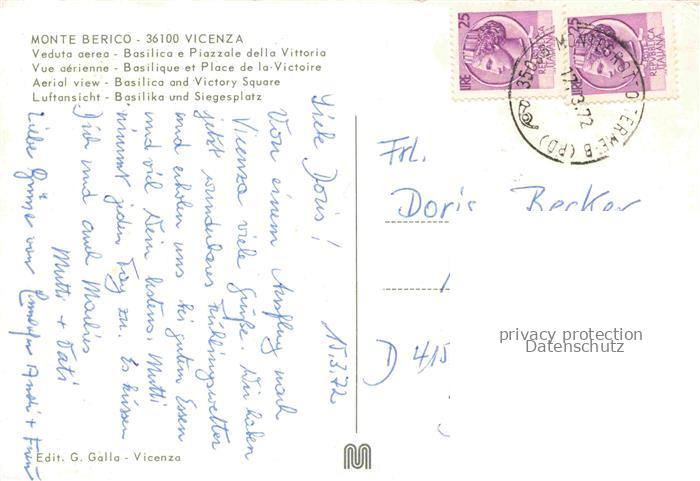 MONTE BERICO - 36100 VICENZA
Veduta aerea - Basilica e Piazzale della Vittoria
Vue aérienne - Basilique et Place de la Victoire
Aerial view - Basilica and Victory Square
Luftansicht - Basilika und Siegesplatz
LIRE 25
REPUBBLICA ITALIANA
35036 MONTEGROTTO TERME B (PD)
17.3.72
15.3.72
Liebe Doris!
Von einem Ausflug nach
Vicenza viele Grüße. Wir haben
jetzt wunderbares Frühlingswetter
und erholen uns bei gutem Essen
und viel Wein bestens. Mutti
nimmt jeden Tag zu. Es küssen
Dich und auch Marlies
Mutti + Vati
Liebe Grüße von
Frl.
Doris Becker
D 415
privacy protection
Datenschutz
Edit. G. Galla - Vicenza
M